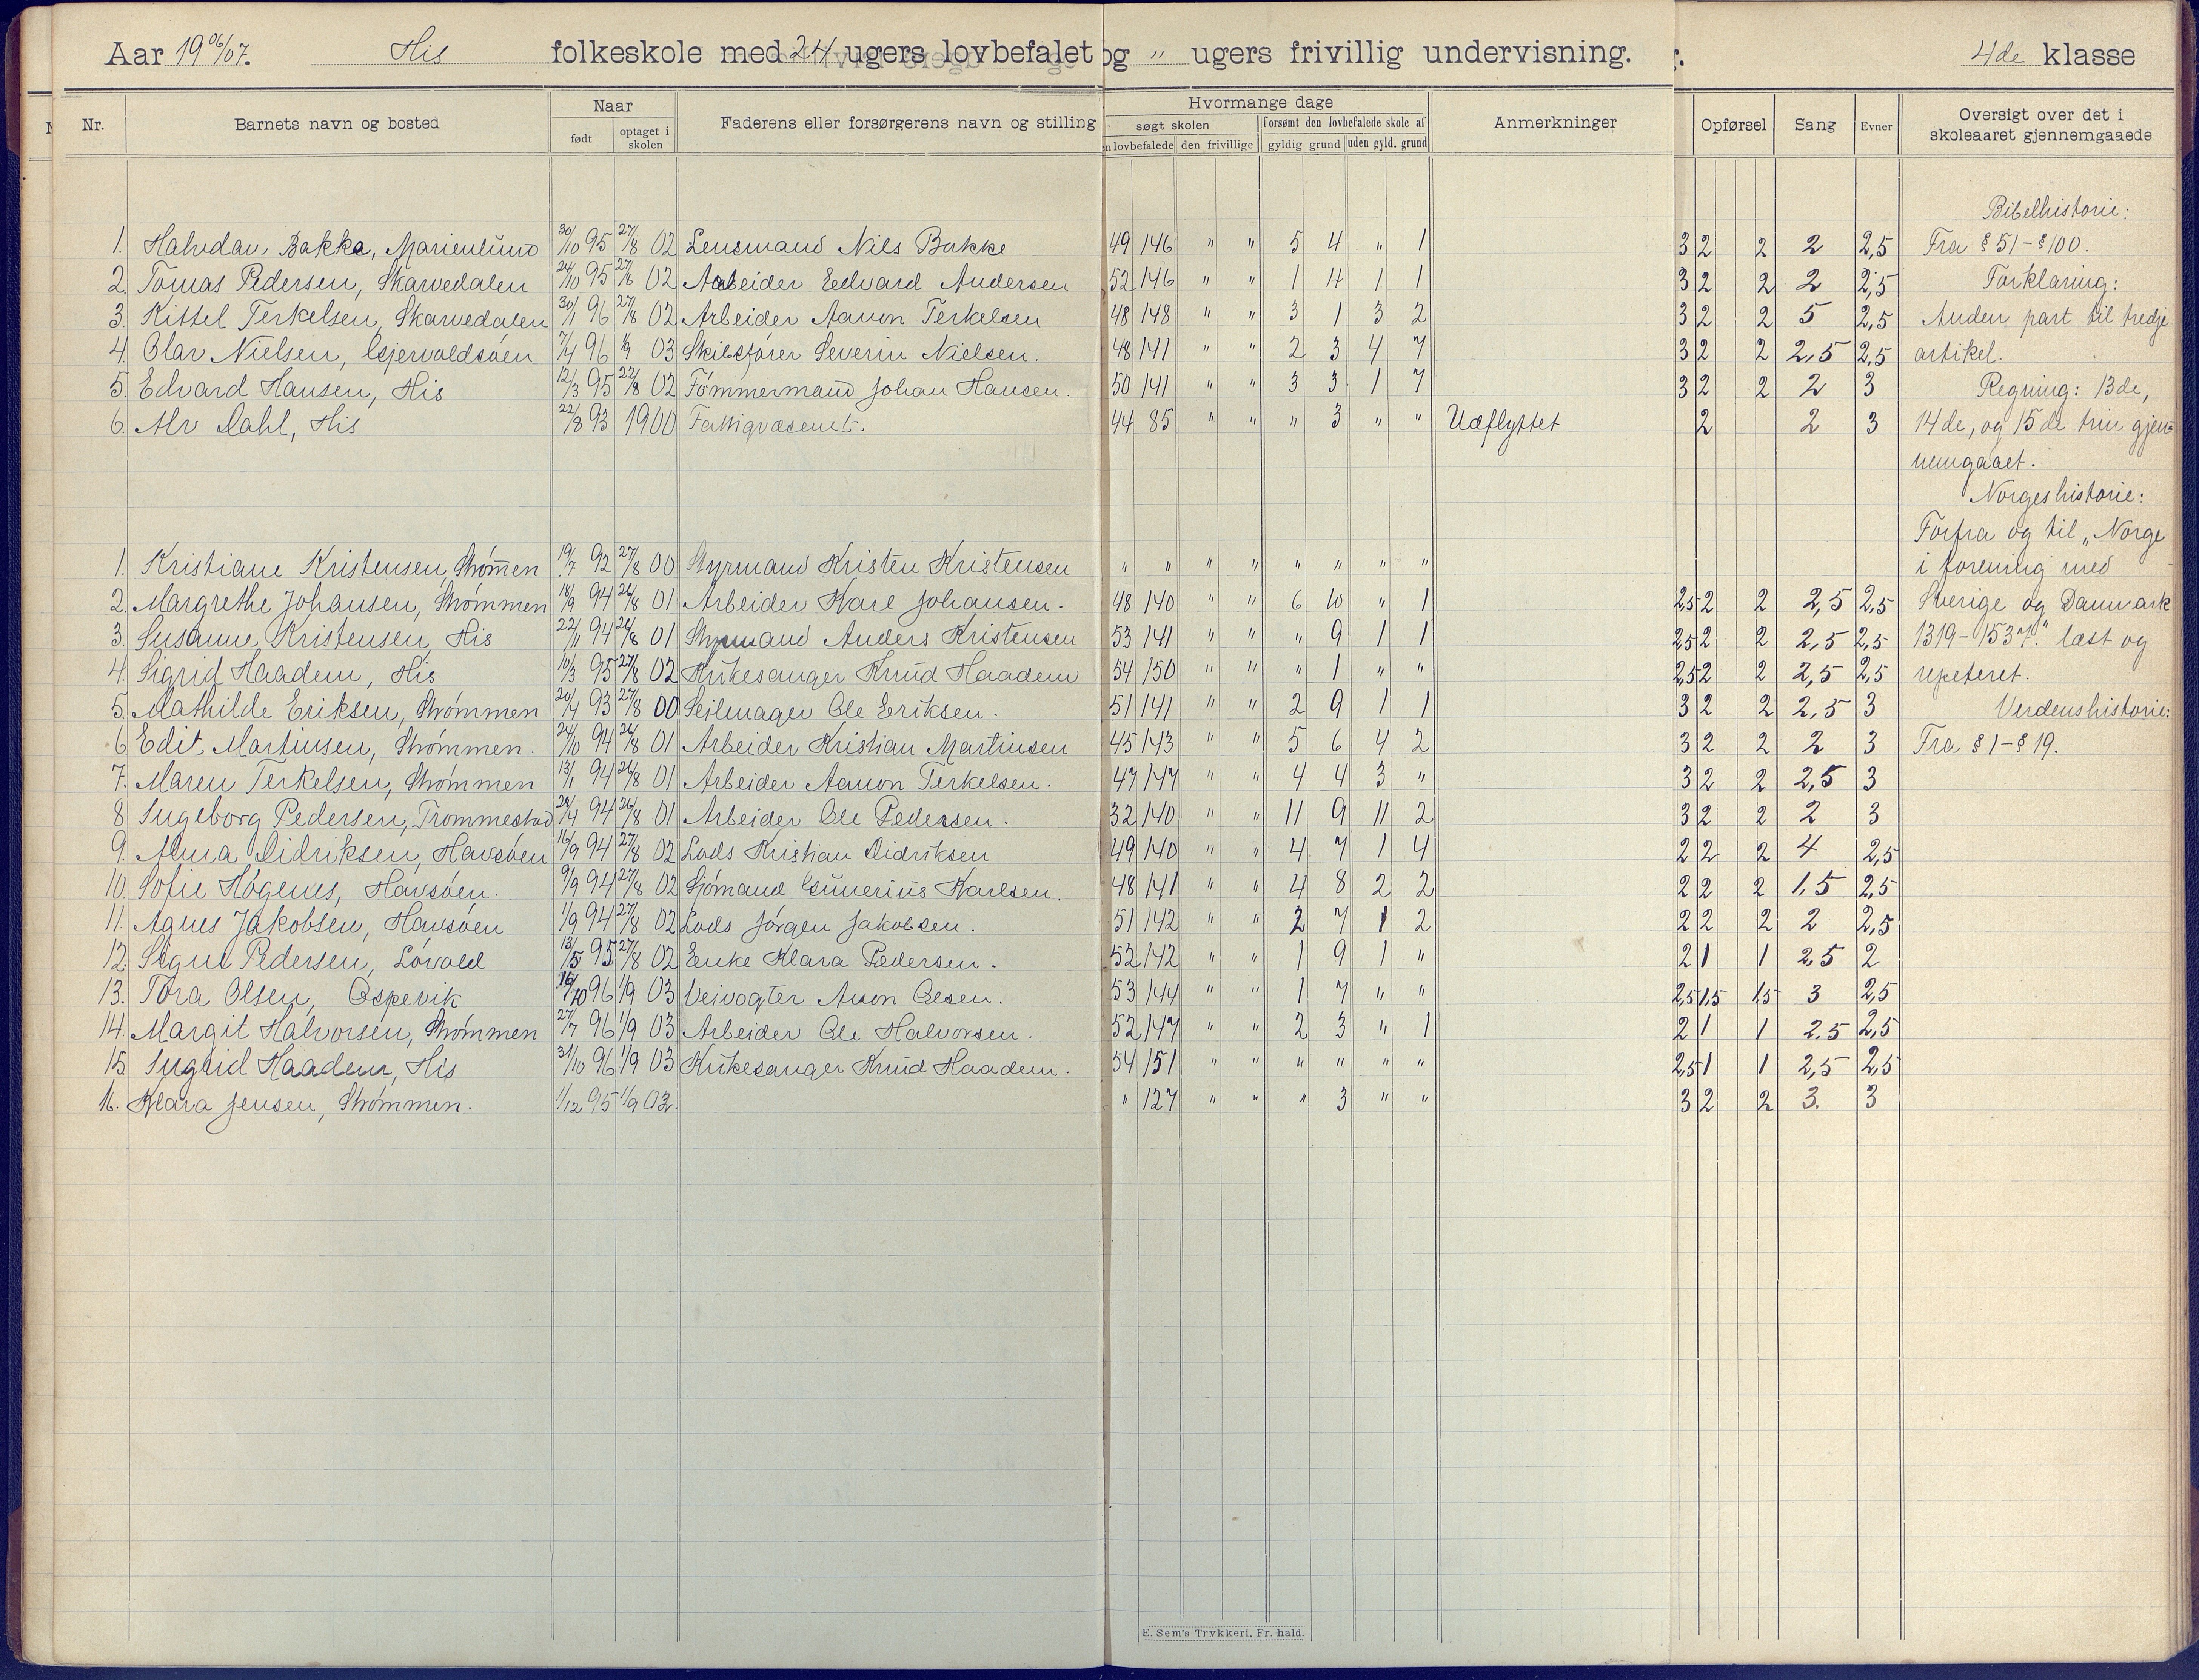 Aar 1906/07. His folkeskole med 24 ugers lovbefalet og " ugers frivillig undervisning. 4de klasse
Nr. Barnets navn og bosted Naar født optaget i skolen Faderens eller forsørgerens navn og stilling Hvormange dage søgt skolen lovbefalede den frivillige forsømt den lovbefalede skole af gyldig grund uden gyld. grund Anmerkninger Opførsel Sang Evner Oversigt over det i skoleaaret gjennemgaaede
Bibelhistorie:
1. Halvdan Bakke, Marienlund 30/10 95 27/8 02 Lensmand Nils Bakke 49 146 " " 5 4 " 1 3 2 2 2 2,5 Fra § 51 - § 100.
2. Tomas Pedersen, Skarvedalen 24/10 95 27/8 02 Arbeider Edvard Andersen 52 146 " " 1 4 1 1 3 2 2 2 2,5 Forklaring:
3. Kittel Terkelsen, Skarvedalen 30/1 96 27/8 02 Arbeider Aanon Terkelsen 48 148 " " 3 1 3 2 3 2 2 5 2,5 Anden part til tredje
4. Olav Nielsen, Gjervoldsøen 7/4 96 1/9 03 Skibsfører Severin Nielsen. 48 141 " " 2 3 4 7 3 2 2 2,5 2,5 artikel.
5. Edvard Hansen, His 12/3 95 22/8 02 Tømmermand Johan Hansen. 50 141 " " 3 3 1 7 3 2 2 2 3 Regning: 13de,
6. Alv Dahl, His 22/8 93 1900 Fattigvæsenet. 44 85 " " " 3 " " Udflyttet 2 2 3 14de, og 15de trin gjen-
nemgaaet.
Norgeshistorie:
Forfra og til „Norge
1. Kristiane Kristensen, Strømmen 19/7 92 27/8 00 Styrmand Kristen Kristensen " " " " " " " " i forening med
2. Margrethe Johansen, Strømmen 18/9 94 26/8 01 Arbeider Karl Johansen. 48 140 " " 6 10 " 1 2,5 2 2 2,5 2,5 Sverige og Danmark
3. Susanne Kristensen, His 22/11 94 26/8 01 Styrmand Anders Kristensen 53 141 " " " 9 1 1 2,5 2 2 2,5 2,5 1319-1537." læst og
4. Sigrid Haadem, His 10/3 95 27/8 02 Kirkesanger Knud Haadem 54 150 " " " 1 " " 2,5 2 2 2,5 2,5 repeteret.
5. Mathilde Eriksen, Strømmen 20/4 93 27/8 00 Seilmager Ole Eriksen. 51 141 " " 2 9 1 1 3 2 2 2,5 3 Verdenshistorie:
6. Edit Martinsen, Strømmen. 24/10 94 26/8 01 Arbeider Kristian Martinsen 45 143 " " 5 6 4 2 3 2 2 2 3 Fra § 1 - § 19.
7. Maren Terkelsen, Strømmen 13/1 94 26/8 01 Arbeider Aanon Terkelsen. 47 147 " " 4 4 3 " 3 2 2 2,5 3
8 Ingeborg Pedersen, Trommestad 94 26/8 01 Arbeider Ole Pedersen. 32 140 " " 11 9 11 2 3 2 2 2 3
9. Alma Didriksen, Havsøen 16/9 94 27/8 02 Lods Kristian Didriksen 49 140 " " 4 7 1 4 2 2 2 4 2,5
10. Sofie Høgenes, Havsøen. 9/9 94 27/8 02 Sjømand Gunerius Karlsen. 48 141 " " 4 8 2 2 2 2 2 1,5 2,5
11. Agnes Jakobsen, Havsøen 1/9 94 27/8 02 Lods Jørgen Jakobsen. 51 142 " " 2 7 1 2 2 2 2 2 2,5
12. Signe Pedersen, Løvold 13/5 95 27/8 02 Enke Klara Pedersen. 52 142 " " 1 9 1 " 2 1 1 2,5 2
13. Tora Olsen, Ospevik 16/10 96 1/9 03 Veivogter Olsen. 53 144 " " 1 7 " " 2,5 1,5 1,5 3 2,5
14. Margit Halvorsen, Strømmen 27/7 96 1/9 03 Arbeider Ole Halvorsen. 52 147 " " 2 3 " 1 2 1 1 2,5 2,5
15 Ingrid Haadem, His 31/10 96 1/9 03 Kirkesanger Knud Haadem. 54 151 " " " " " " 2,5 1 1 2,5 2,5
16. Klara Jensen, Strømmen. 1/12 95 1/9 03. " 127 " " " 3 " " 3 2 2 3. 3
E. Sem's Trykkeri, Fr. hald.